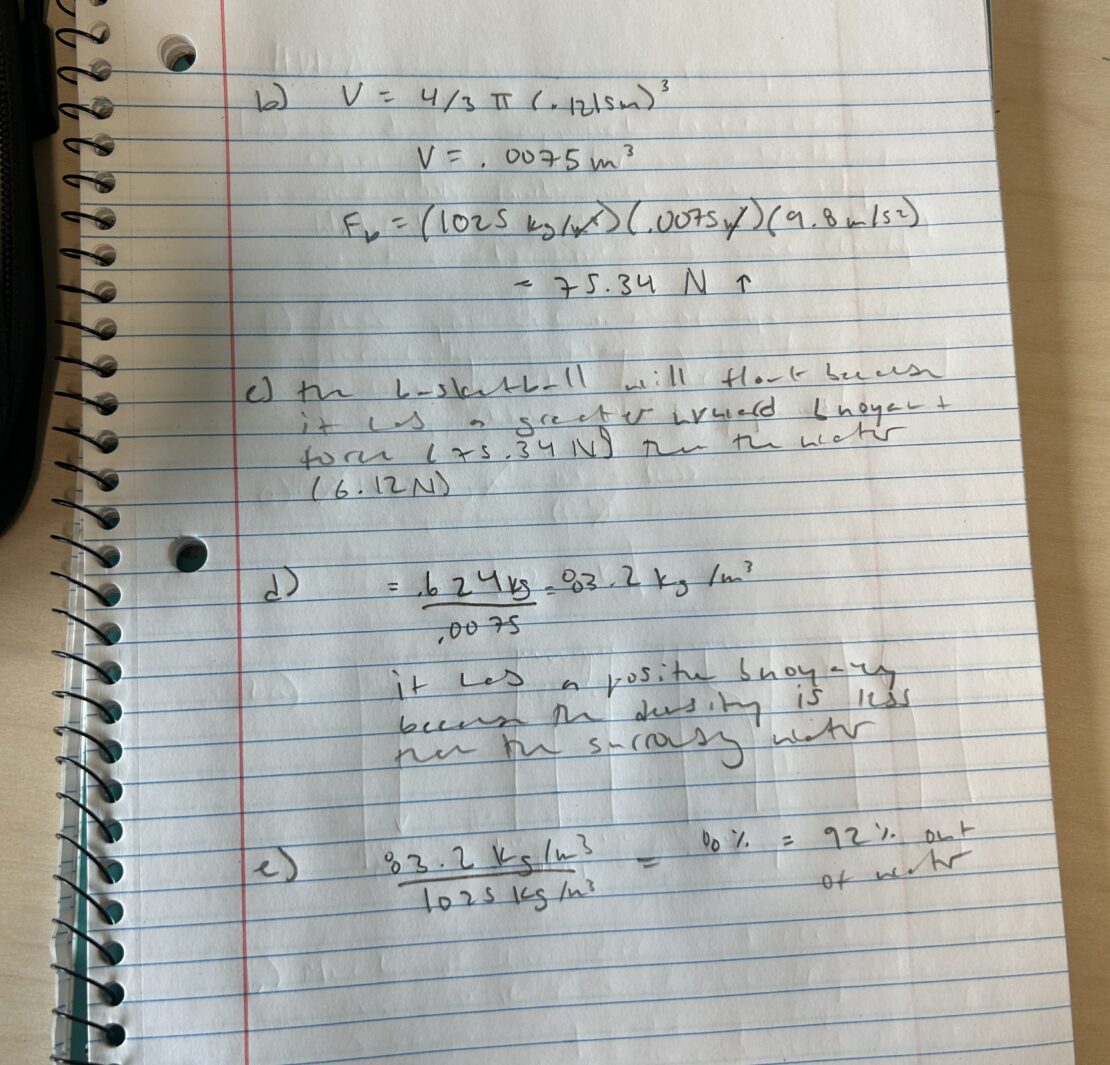 b) V = 4/3 π (.1215m)³
V = .0075 m³
F_b = (1025 kg/m³)(.0075m³)(9.8 m/s²)
= 75.34 N ↑
c) the basketball will float because
it has a greater upward buoyant
force (75.34 N) than the water
(6.12N)
d) = .624kg = 83.2 kg/m³
.0075
it has a positive buoyancy
because the density is less
than the surrounding water
e) 83.2 kg/m³ = 8% = 92% out
1025 kg/m³ of water